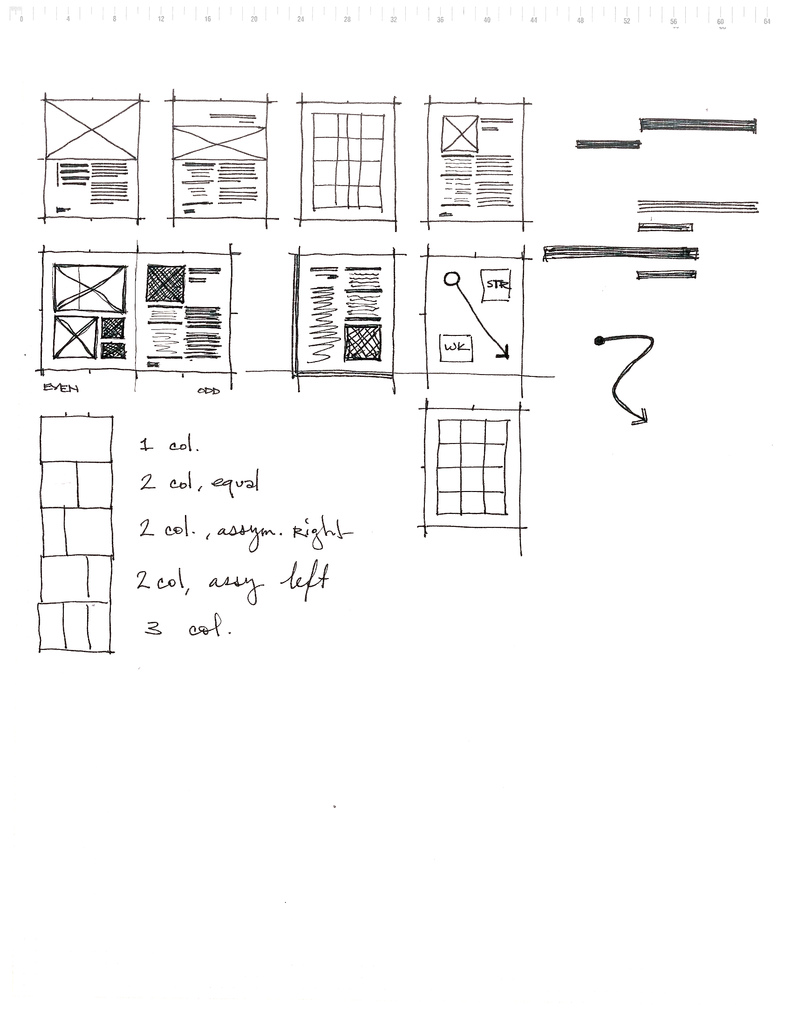 0 4 8 12 16 20 24 28 32 36 40 44 48 52 56 60 64
STR
WK
EVEN ODD
1 col.
2 col, equal
2 col., assym. Right
2 col, assy left
3 col.